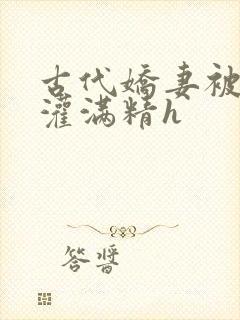 古代嬌妻被
灌滿精h
答醬